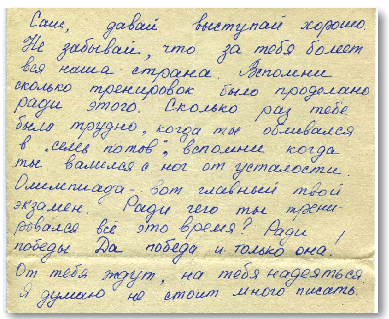 Саш, давай выступай хорошо.
Не забывай, что за тебя болеет
вся наша страна. Вспомни
сколько тренировок было проделано
ради этого. Сколько раз тебе
было трудно, когда ты обливался
в "семь потов", вспомни когда
ты валился с ног от усталости.
Олимпиада - вот главный твой
экзамен. Ради чего ты трени-
ровался всё это время? Ради
победы Да победа и только она!
От тебя ждут, на тебя надеяться
Я думаю не стоит много писать.